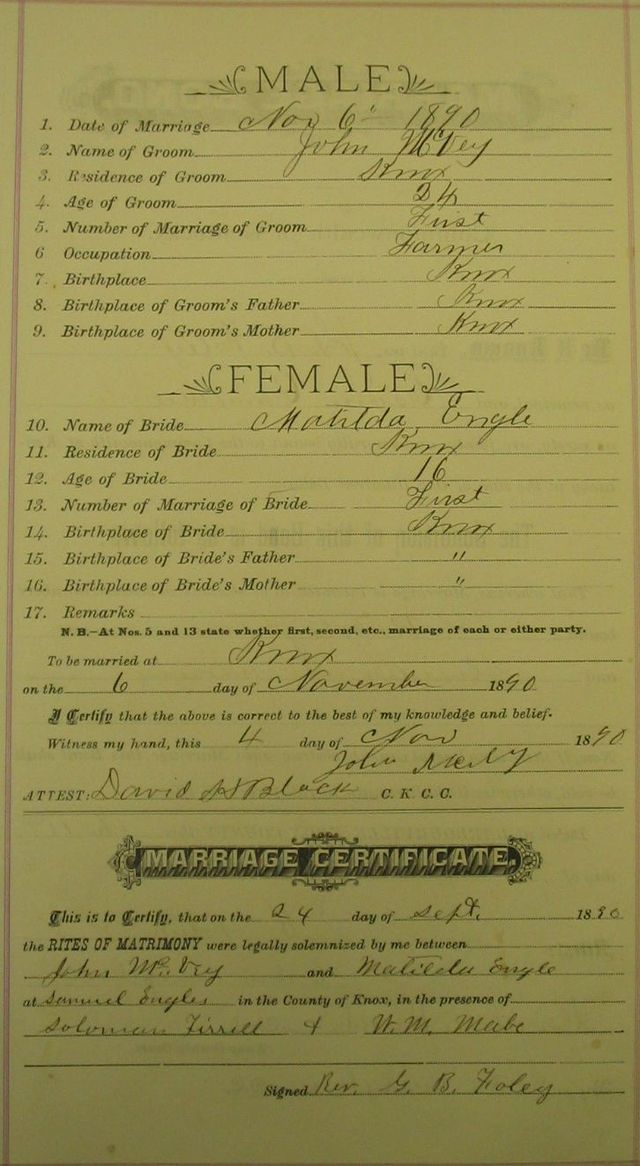 MALE
1. Date of Marriage Nov 6" 1890
2. Name of Groom John McVey
3. Residence of Groom Knox
4. Age of Groom 24
5. Number of Marriage of Groom First
6 Occupation Farmer
7. Birthplace Knox
8. Birthplace of Groom's Father Knox
9. Birthplace of Groom's Mother Knox
FEMALE
10. Name of Bride Matilda Engle
11. Residence of Bride Knox
12. Age of Bride 16
13. Number of Marriage of Bride First
14. Birthplace of Bride Knox
15. Birthplace of Bride's Father "
16. Birthplace of Bride's Mother "
17. Remarks
N. B.—At Nos. 5 and 13 state whether first, second, etc., marriage of each or either party.
To be married at Knox
on the 6 day of November 1890
I Certify that the above is correct to the best of my knowledge and belief.
Witness my hand, this 4 day of Nov 1890
John
ATTEST: David H Black C. K. C. C.
MARRIAGE CERTIFICATE.
This is to Certify, that on the 24 day of Sept. 1890
the RITES OF MATRIMONY were legally solemnized by me between
John McVey and Matilda Engle
at Samuel Engles in the County of Knox, in the presence of
Soloman & W. M. Mabe
Signed Rev. G. B. Foley